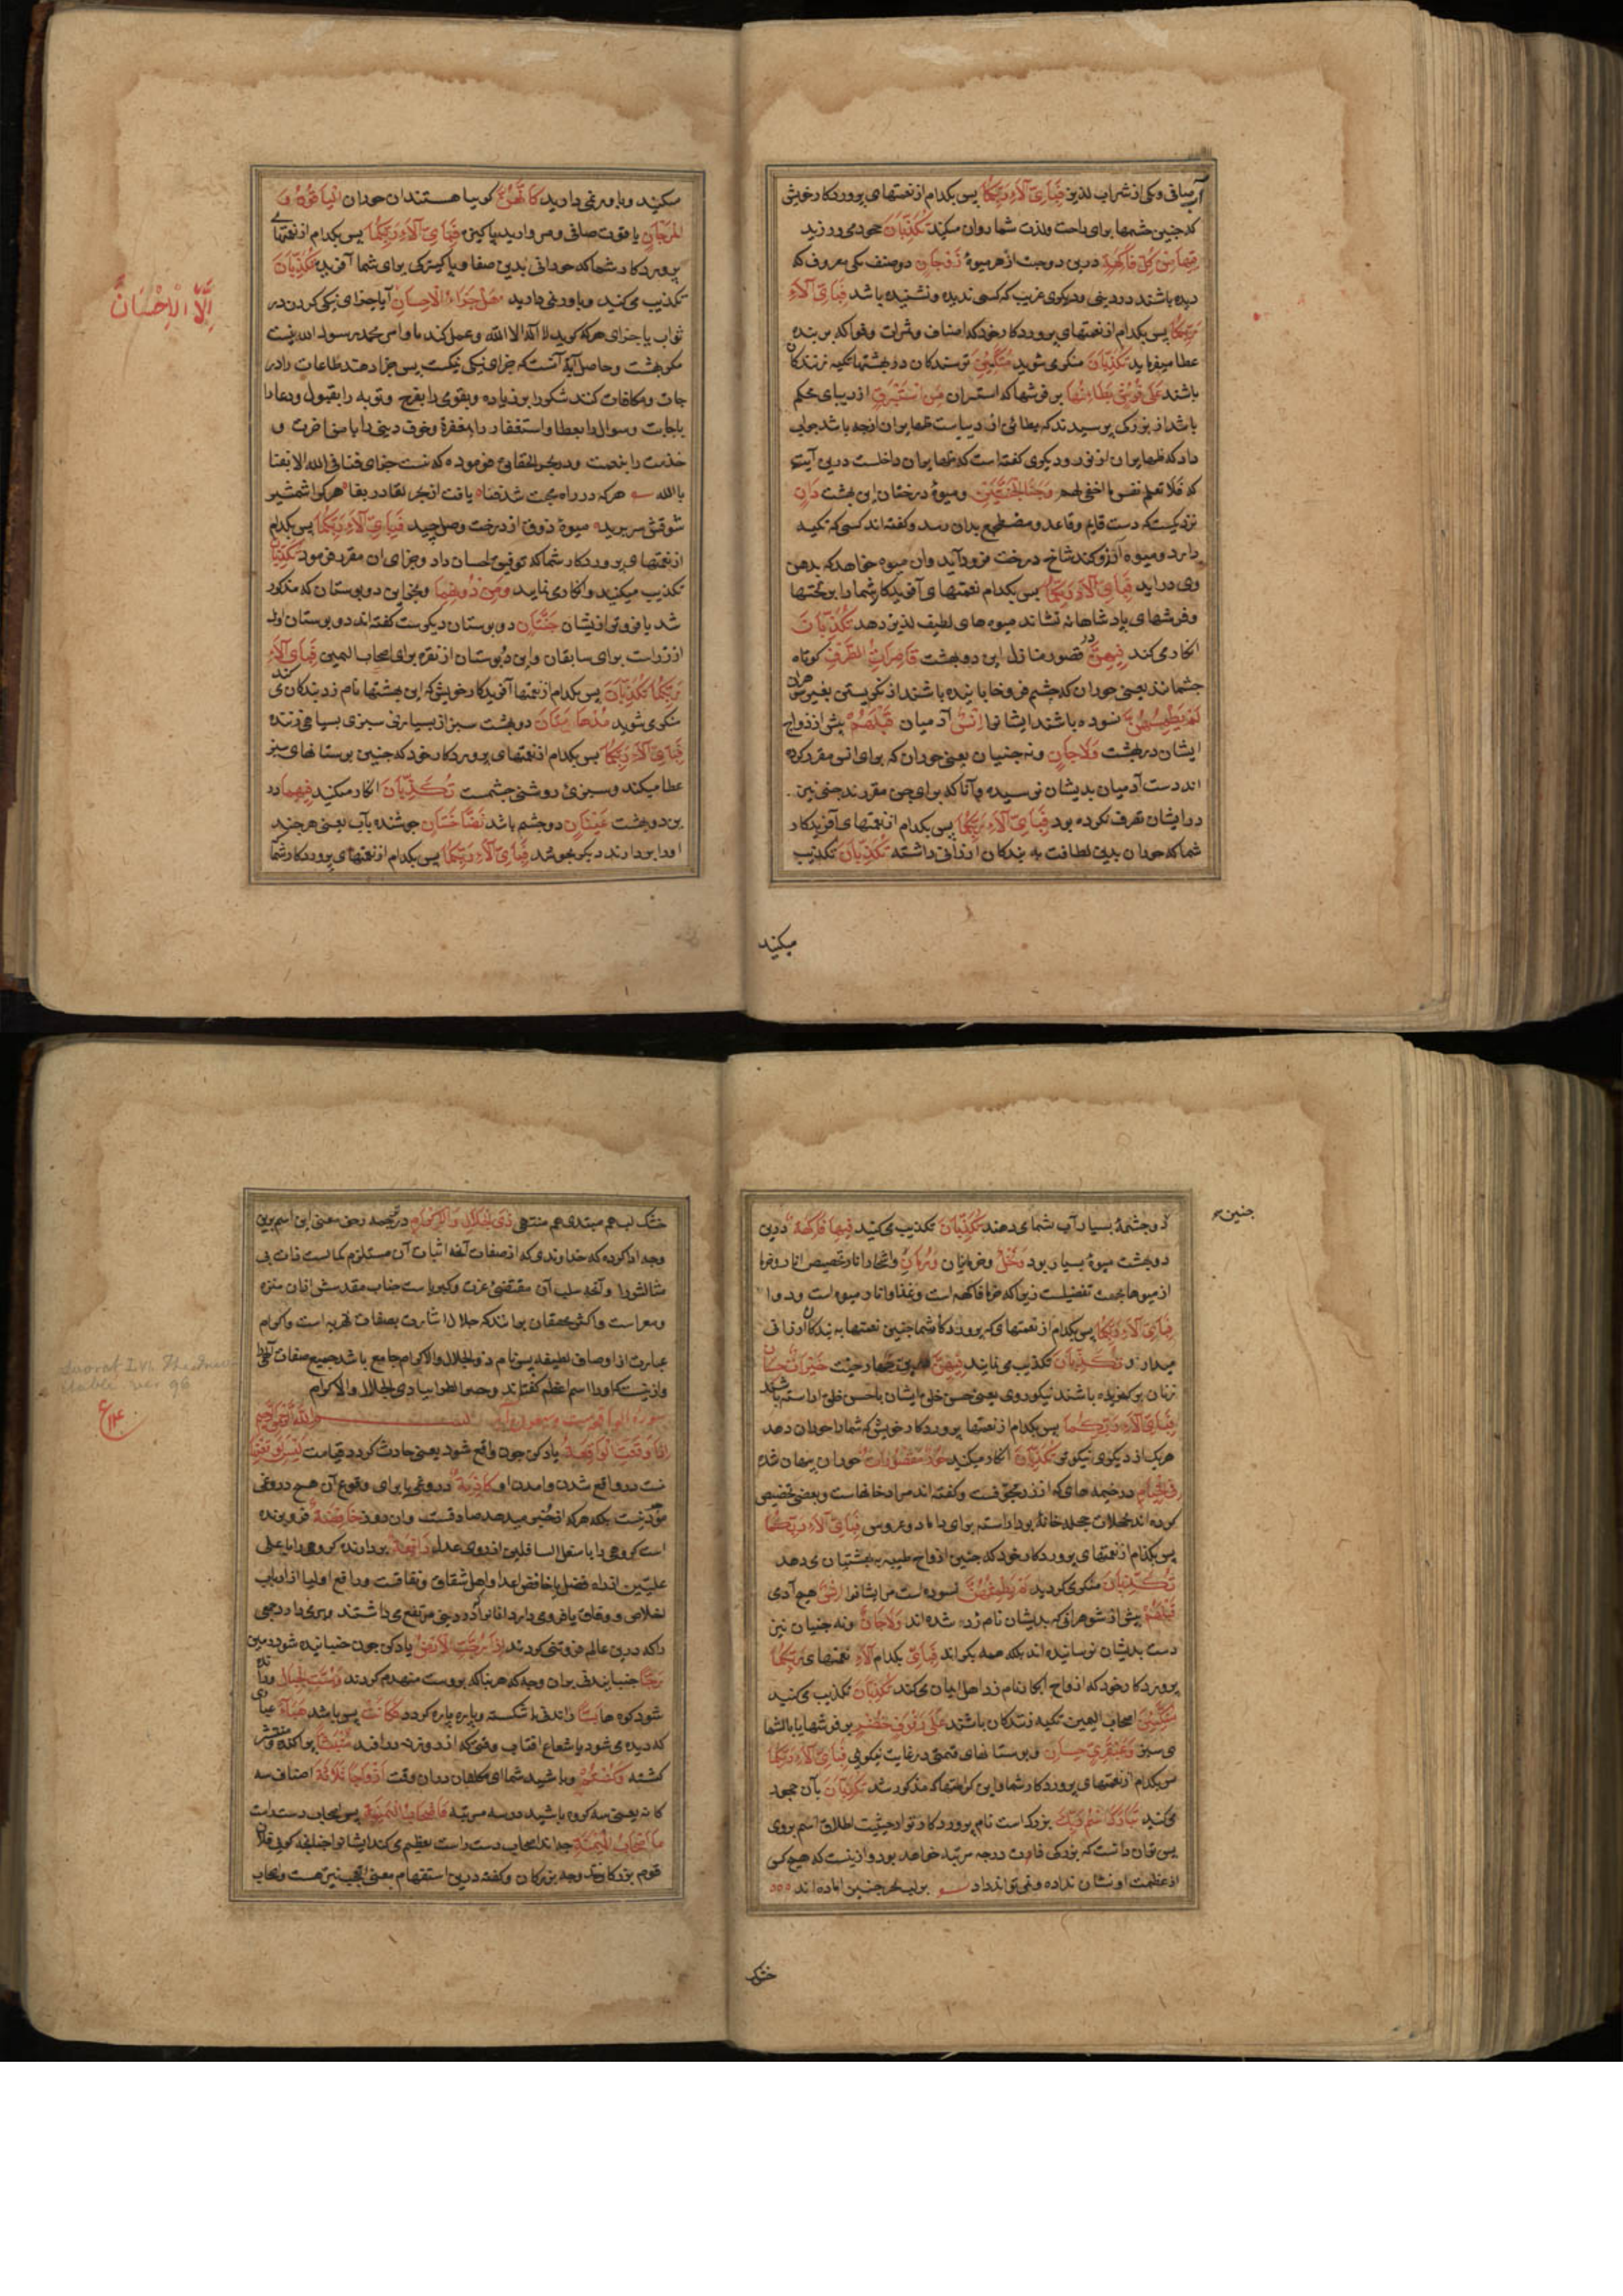 آب صافی ویکی از شراب لذیذ فَبِاَیِّ آلَاءِ رَبِّکُمَا پس بکدام از نعمتهای پروردکار خویش
که چنین چشمها برای راحت ولذت شما روان میکند تُکَذِّبَانِ جحود می ورزید
فِیهِمَا مِنْ کُلِّ فَاکِهَةٍ درین دو جنت از هر میوهٔ زَوْجَانِ دو صنف یکی معروف که
دیده باشند در دنیی و دیکری غریب که کسی ندیده و نشنیده باشد فَبِاَیِّ آلَاءِ
رَبِّکُمَا پس بکدام از نعمتهای پروردکار خود که اصناف وثمرات وفواکه بر بنده
عطا میفرماید تُکَذِّبَانِ منکر می شوید مُتَّکِئِینَ ترسندکان در بهشتها تکیه زنندکان
باشند عَلَی فُرُشٍ بَطَائِنُهَا بر فرشها که استر ان مِنْ اِسْتَبْرَقٍ از دیبای محکم
باشد از بزرکی پرسیدند که بطائن از دیباست ظهایر ان از چه باشد جواب
داد که ظهایر ان از نور و دیکری کفته است که ظهایر ان داخلست درین آیت
که فلا تعلم نفس ما اخفی لهم وَجَنَا الْجَنَّتَیْنِ و میوهٔ درختان این بهشت دَانٍ
نزدیکست که دست قایم و قاعد و مضطجع بدان رسد و کفته اند کسی که تکیه
دارد و میوه آرزو کند شاخ درخت فرود آید وان میوه خواهد که بدهن
وی دراید فَبِاَیِّ آلَاءِ رَبِّکُمَا پس بکدام نعمتهای آفریدکار شما را بر تختها
وفرشهای پادشاهانه نشاند میوه های لطیف لذیذ دهد تُکَذِّبَانِ
انکار می کند فِیهِنَّ در قصور منازل این دو بهشت قَاصِرَاتُ الطَّرْفِ کوتاه
چشمانند یعنی حوران که چشم فرو خابانیده باشند از نکریستن بغیر شوهران
لَمْ یَطْمِثْهُنَّ نسوده باشند ایشانرا اِنْسٌ آدمیان قَبْلَهُمْ پیش از ازواج
ایشان در بهشت وَلَا جَانٌّ ونه جنیان یعنی حوران که برای انس مقرر کرده
اند دست آدمیان بدیشان نرسیده و آنا که برای جن مقررند جنی نیز
در ایشان تصرف نکرده بود فَبِاَیِّ آلَاءِ رَبِّکُمَا پس بکدام از نعمتهای آفریدکار
شما که حوران بدین لطافت به بندکان ارزانی داشته تُکَذِّبَانِ تکذیب
میکنید
میکنید وباور نمی دارید کَاَنَّهُنَّ کویا هستند ان حوران الْیَاقُوتُ وَ
الْمَرْجَانُ یاقوت صافی ومروارید پاکیزه فَبِاَیِّ آلَاءِ رَبِّکُمَا پس بکدام از نعمتهای
پروردکار شما که حورانی بدین صفا و پاکیزکی برای شما آفرید تُکَذِّبَانِ
تکذیب می کنید وباور نمی دارید هَلْ جَزَاءُ الْاِحْسَانِ آیا جزای نیکی کردن در
اِلَّا الْاِحْسَانُ
ثواب یا جزای هر که کوید لا اله الا الله وعمل کند بما و اس محمد رسول الله نیست
مکر بهشت وحاصل آیه آنست که جزای نیکی نیکیست پس جزا دهند طاعات را در
جات و مکافات کند شکور ابزیاده وبقومی را بفرح وتوبه را بقبول و دعا را
باجابت وسوال را بعطا واستغفار را بمغفرة وخوف دینی را بامن اخرت و
خدمت را بنعمت ودر بحر الحقایق فرموده که نیست جزای فنا فی الله الا بقا
بالله هر که در راه محبت شد فنا یافت از بحر لقا در بقا هر کرا شمشیر
شوقش سر برید میوهٔ ذوق از درخت وصل چید فَبِاَیِّ آلَاءِ رَبِّکُمَا پس بکدام
از نعمتهای پروردکار شما که توفیق احسان داد وجزای ان مقرر فرمود تُکَذِّبَانِ
تکذیب میکنید و انکار می نماید وَمِنْ دُونِهِمَا وبجز این دو بوستان که مذکور
شد یا فروتر ازیشان جَنَّتَانِ دو بوستان دیکرست کفته اند دو بوستان اول
از زراست برای سابقان واین دو بوستان از نقره برای اصحاب الیمین فَبِاَیِّ آلَاءِ
رَبِّکُمَا تُکَذِّبَانِ پس بکدام از نعمتها آفریدکار خویش که این بهشتها نام زد بندکان می کند
منکر می شوید مُدْهَامَّتَانِ دو بهشت سبز از بسیاری سبزی بسیاهی زننده
فَبِاَیِّ آلَاءِ رَبِّکُمَا پس بکدام از نعمتهای پروردکار خود که چنین بوستانهای سبز
عطا میکند وسبزی روشنی چشمست تُکَذِّبَانِ انکار میکنید فِیهِمَا در
ین دو بهشت عَیْنَانِ دو چشم باشد نَضَّاخَتَانِ جوشنده بآب یعنی هر چند
از و بردارند دیکر بجوشد فَبِاَیِّ آلَاءِ رَبِّکُمَا پس بکدام از نعمتهای پروردکار شما
چنین
دو چشمهٔ بسیار آب شما می دهند تُکَذِّبَانِ تکذیب می کنید فِیهِمَا فَاکِهَةٌ درین
دو بهشت میوهٔ بسیار بود وَنَخْلٌ وخرمابنان وَرُمَّانٌ و انار تخصیص انار و خرما
از میوها بجهت تفضیلست زیرا که خرما فاکهه است وغذا وانار میوه است و دوا
فَبِاَیِّ آلَاءِ رَبِّکُمَا پس بکدام از نعمتهای پروردکار شما چنین نعمتها به بندکان ارزانی
میدارد تُکَذِّبَانِ تکذیب می نمایند فِیهِنَّ درین چهار جنت خَیْرَاتٌ حِسَانٌ
زنان برکزیده باشند نیکو روی یعنی حسن خلق ایشان باحسن خلق اراسته باشد
فَبِاَیِّ آلَاءِ رَبِّکُمَا پس بکدام از نعمتها پروردکار خویش که شما را حوران دهد
هر یک از دیکری نیکوتر تُکَذِّبَانِ انکار میکنید حُورٌ مَقْصُورَاتٌ حوران پنهان شده
فِی الْخِیَامِ در خیمه های که از در مجوفست وکفته اند مراد خانهاست وبعضی تخصیص
کرده اند بحجلات حجله خانهٔ بود اراسته برای داماد وعروس فَبِاَیِّ آلَاءِ رَبِّکُمَا
پس بکدام از نعمتهای پروردکار خود که چنین ازواج طیبه به بهشتیان می دهد
تُکَذِّبَانِ منکر می کردید لَمْ یَطْمِثْهُنَّ نسوده است مر ایشانرا اِنْسٌ هیچ آدمی
قَبْلَهُمْ پیش از شوهرانی که بدیشان نام زد شده اند وَلَا جَانٌّ ونه جنیان نیز
دست بدیشان نرسانیده اند بلکه همه بکراند فَبِاَیِّ بکدام آلَاءِ نعمتهای رَبِّکُمَا
پروردکار خود که ازواج ابکار نام زد اهل ایمان می کند تُکَذِّبَانِ تکذیب می کنید
مُتَّکِئِینَ اصحاب الیمین تکیه زنندکان باشند عَلَی رَفْرَفٍ خُضْرٍ بر فرشها یا بالشها
ی سبز وَعَبْقَرِیٍّ حِسَانٍ وبر بستانهای قیمتی در غایت نیکویی فَبِاَیِّ آلَاءِ رَبِّکُمَا
پس بکدام از نعمتهای پروردکار شما و این کرامتها که مذکور شد تُکَذِّبَانِ بآن جحود
می کنید تَبَارَکَ اسْمُ رَبِّکَ بزرکست نام پروردکار تو از حیثیت اطلاق اسم بر وی
پس توان دانست که بزرکی ذات درجه مرتبه خواهد بود و ازینست که هیچ کس
از عظمت او نشان نداده ونمی تواند داد بر لب بحر چنین اماده اند
خشک
خشک لب هم مبتدی هم منتهی ذِی الْجَلَالِ وَالْاِکْرَامِ در ترجمه رحمن معنی این اسم برین
وجه ادا کرده که خداوندی که از صفات آنچه اثبات آن مستلزم کمالست ذات بی
مثالش را و آنچه سلب آن مقتضی عزت وکبریاست جناب مقدسش ازان منزه
ومبراست و اکثر محققان برانند که جلال اشارت بصفات قهریه است و اکرام
عبارت از اوصاف لطیفه پس نام ذو الجلال والاکرام جامع باشد جمیع صفات الهی
و ازینست که او را اسم اعظم کفته اند و حدیث الظوا بیا ذی الجلال والاکرام
Soorat LVI The Inevitable ver 96
ع ۱۳
اِذَا وَقَعَتِ الْوَاقِعَةُ یاد کن چون واقع شود یعنی حادث کردد قیامت لَیْسَ لِوَقْعَتِهَا
نیست در واقع شدن و امدن او کَاذِبَةٌ دروغی یا برای وقوع آن هیچ دروغی
نیست بلکه هر که از خبر میدهد صادقست وان روز خَافِضَةٌ فروبرنده
است کروهی را باسفل السافلین از روی عدل رَافِعَةٌ بردارنده کروهی را باعلی
علیین از راه فضل یا خافض اعدا واهل شقاق و نفاقست و رافع اولیا از ارباب
اخلاص و وفاق
را که درین عالم فروتنی کردند اِذَا رُجَّتِ الْاَرْضُ یاد کن چون جنبانیده شود زمین
رَجًّا جنبانیدنی بران وجه که هر بنا که بروست منهدم کردد وَبُسَّتِ الْجِبَالُ ورانده
شود کوه ها بَسًّا راندنی یا شکسته و پاره پاره کردد فَکَانَتْ پس باشد هَبَاءً غباری
که دیده می شود با شعاع افتاب وقتی که از روزنه در افتد مُنْبَثًّا پراکنده و منتشر
کشته وَکُنْتُمْ وباشید شما ای مکلفان دران وقت اَزْوَاجًا ثَلَاثَةً اصناف سه
کانه یعنی سه کروه باشید در سه مرتبه فَاَصْحَابُ الْمَیْمَنَةِ پس اصحاب دست راست
مَا اَصْحَابُ الْمَیْمَنَةِ چه اند اصحاب دست راست تعظیم می کند ایشانرا چنانچه کویی فلان
قوم بزرکانند وچه بزرکان وکفته درین استفهام معنی تعجب نیز هست واصحاب